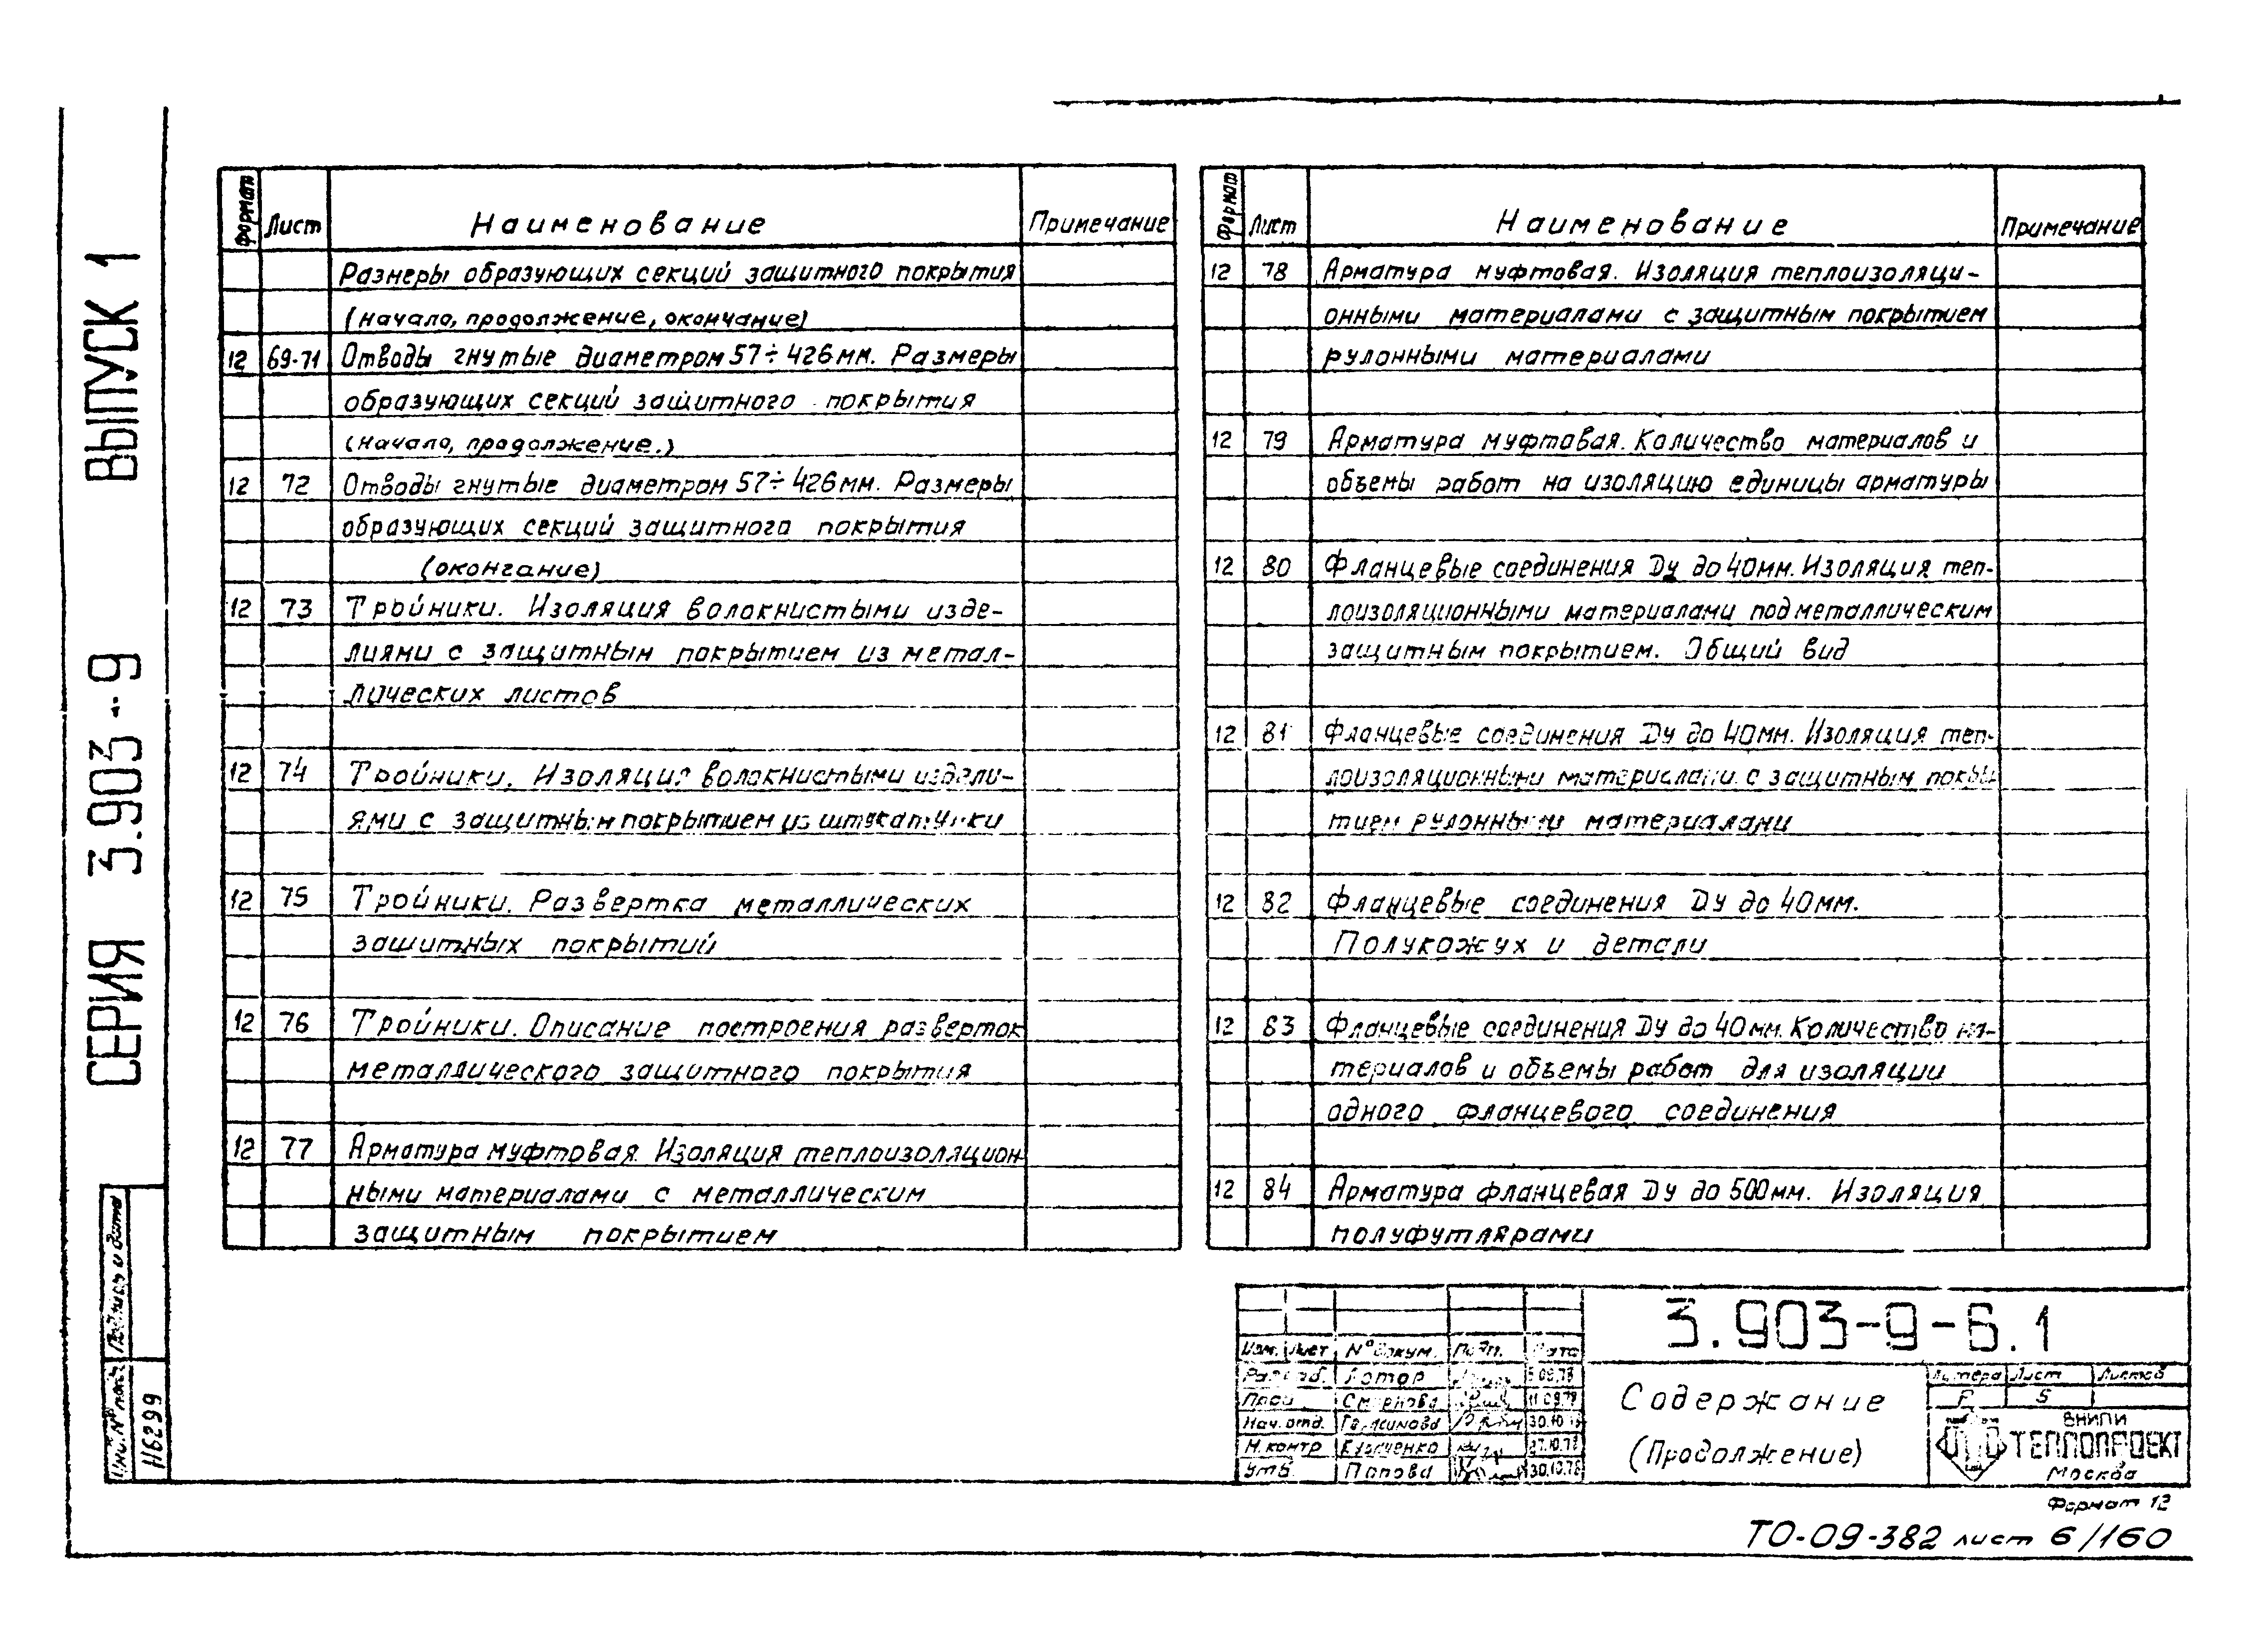 СЕРИЯ 3.903-9 ВЫПУСК 1
Формат Лист Наименование Примечание
Размеры образующих секций защитного покрытия
(начало, продолжение, окончание)
12 69-71 Отводы гнутые диаметром 57÷426мм. Размеры
образующих секций защитного покрытия
(начало, продолжение.)
12 72 Отводы гнутые диаметром 57÷426мм. Размеры
образующих секций защитного покрытия
(окончание)
12 73 Тройники. Изоляция волокнистыми изде-
лиями с защитным покрытием из метал-
лических листов
12 74 Тройники. Изоляция волокнистыми издели-
ями с защитным покрытием из штукатурки
12 75 Тройники. Развертка металлических
защитных покрытий
12 76 Тройники. Описание построения разверток
металлического защитного покрытия
12 77 Арматура муфтовая. Изоляция теплоизоляцион-
ными материалами с металлическим
защитным покрытием
Формат Лист Наименование Примечание
12 78 Арматура муфтовая. Изоляция теплоизоляци-
онными материалами с защитным покрытием
рулонными материалами
12 79 Арматура муфтовая. Количество материалов и
объемы работ на изоляцию единицы арматуры
12 80 Фланцевые соединения Dу до 40мм. Изоляция теп-
лоизоляционными материалами под металлическим
защитным покрытием. Общий вид
12 81 Фланцевые соединения Dу до 40мм. Изоляция теп-
лоизоляционными материалами с защитным покры-
тием рулонными материалами
12 82 Фланцевые соединения Dу до 40мм.
Полукожух и детали
12 83 Фланцевые соединения Dу до 40мм. Количество ма-
териалов и объемы работ для изоляции
одного фланцевого соединения
12 84 Арматура фланцевая Dу до 500мм. Изоляция
полуфутлярами
Подпись и дата
Инв. № подл.
Н6299
3.903-9-6.1
Изм. Лист № докум. Подп. Дата
Разраб. Лотор
Пров. Смирнова
Нач. отд. Герасимова
Н. контр
Утв. Попова 30.10.78
Содержание
(Продолжение)
Литера Лист Листов
Р 5
ВНИПИ
ТЕПЛОПРОЕКТ
Москва
Формат 12
ТО-09-382 лист 6/160